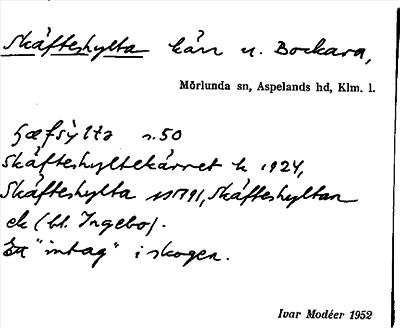 Skáfteshylta kärr u. Bockara,
Mörlunda sn, Aspelands hd, Klm. l.
s. 50
Skáfteshyltekärret k 1924,
Skáfteshylta 1791, Skáfteshyltan
ek (bl. Ingebo).
Ett "intag" i skogen.
Ivar Modéer 1952